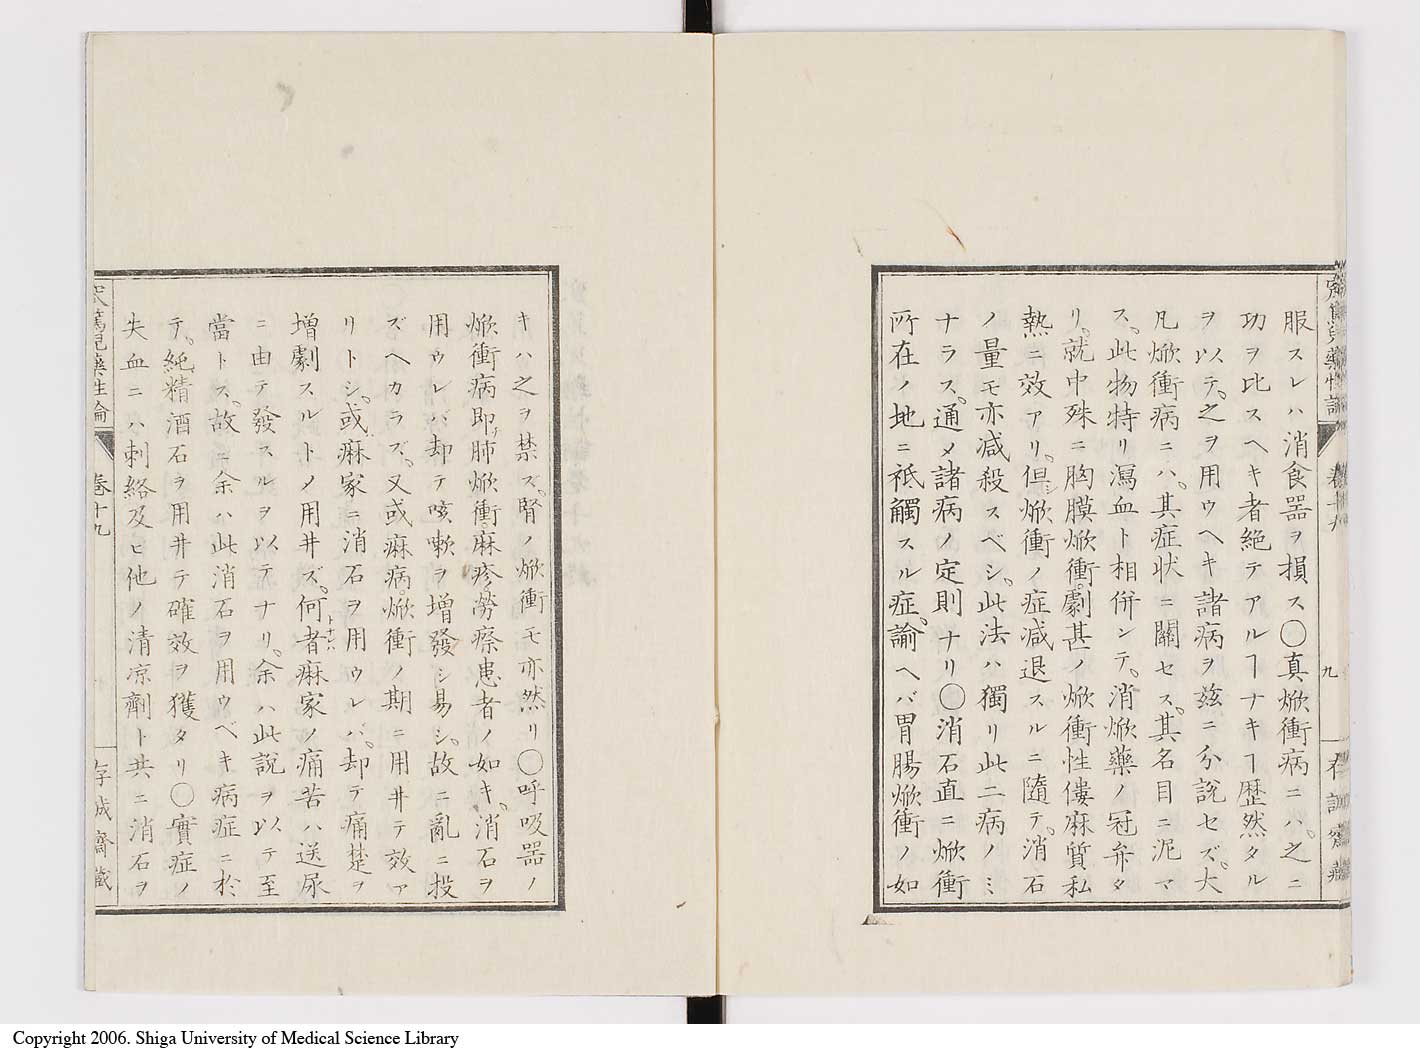 服スレハ消食器ヲ損ス〇真焮衝病ニハ、之ニ
功ヲ比スヘキ者絶テアルヿナキヿ歴然タル
ヲ以テ、之ヲ用ウヘキ諸病ヲ玆ニ分説セズ、大
凡焮衝病ニハ、其症状ニ關セス、其名目ニ泥マ
ス、此物特リ瀉血ト相併ンテ、消焮藥ノ冠弁タ
リ、就中殊ニ胸膜焮衝、劇甚ノ焮衝性僂麻質私
熱ニ效アリ、但焮衝ノ症減退スルニ隨テ、消石
ノ量モ亦減殺スベシ、此法ハ獨リ此二病ノミ
ナラス、通メ諸病ノ定則ナリ〇消石直ニ焮衝
所在ノ地ニ衹觸スル症、諭ヘバ胃腸焮衝ノ如
九
キハ之ヲ禁ズ、腎ノ焮衝モ亦然リ〇呼吸器ノ
焮衝病即肺焮衝、麻疹、勞瘵患者ノ如キ、消石ヲ
用ウレバ却テ咳嗽ヲ增發シ易シ、故ニ亂ニ投
ズヘカラズ、又或痳病、焮衝ノ期ニ用井テ效ア
リトシ、或痳家ニ消石ヲ用ウレバ、却テ痛楚ヲ
增劇スルトメ用井ズ、何者痳家ノ痛苦ハ送尿
ニ由テ發スルヲ以テナリ、余ハ此説ヲ以テ至
當トス、故ニ余ハ此消石ヲ用ウベキ病症ニ於
テ、純精酒石ヲ用井テ確效ヲ獲タリ〇實症ノ
失血ニハ刺絡及ヒ他ノ清凉劑ト共ニ消石ヲ
篤兒藥性論 卷十九 存誠齋藏
Copyright 2006. Shiga University of Medical Science Library